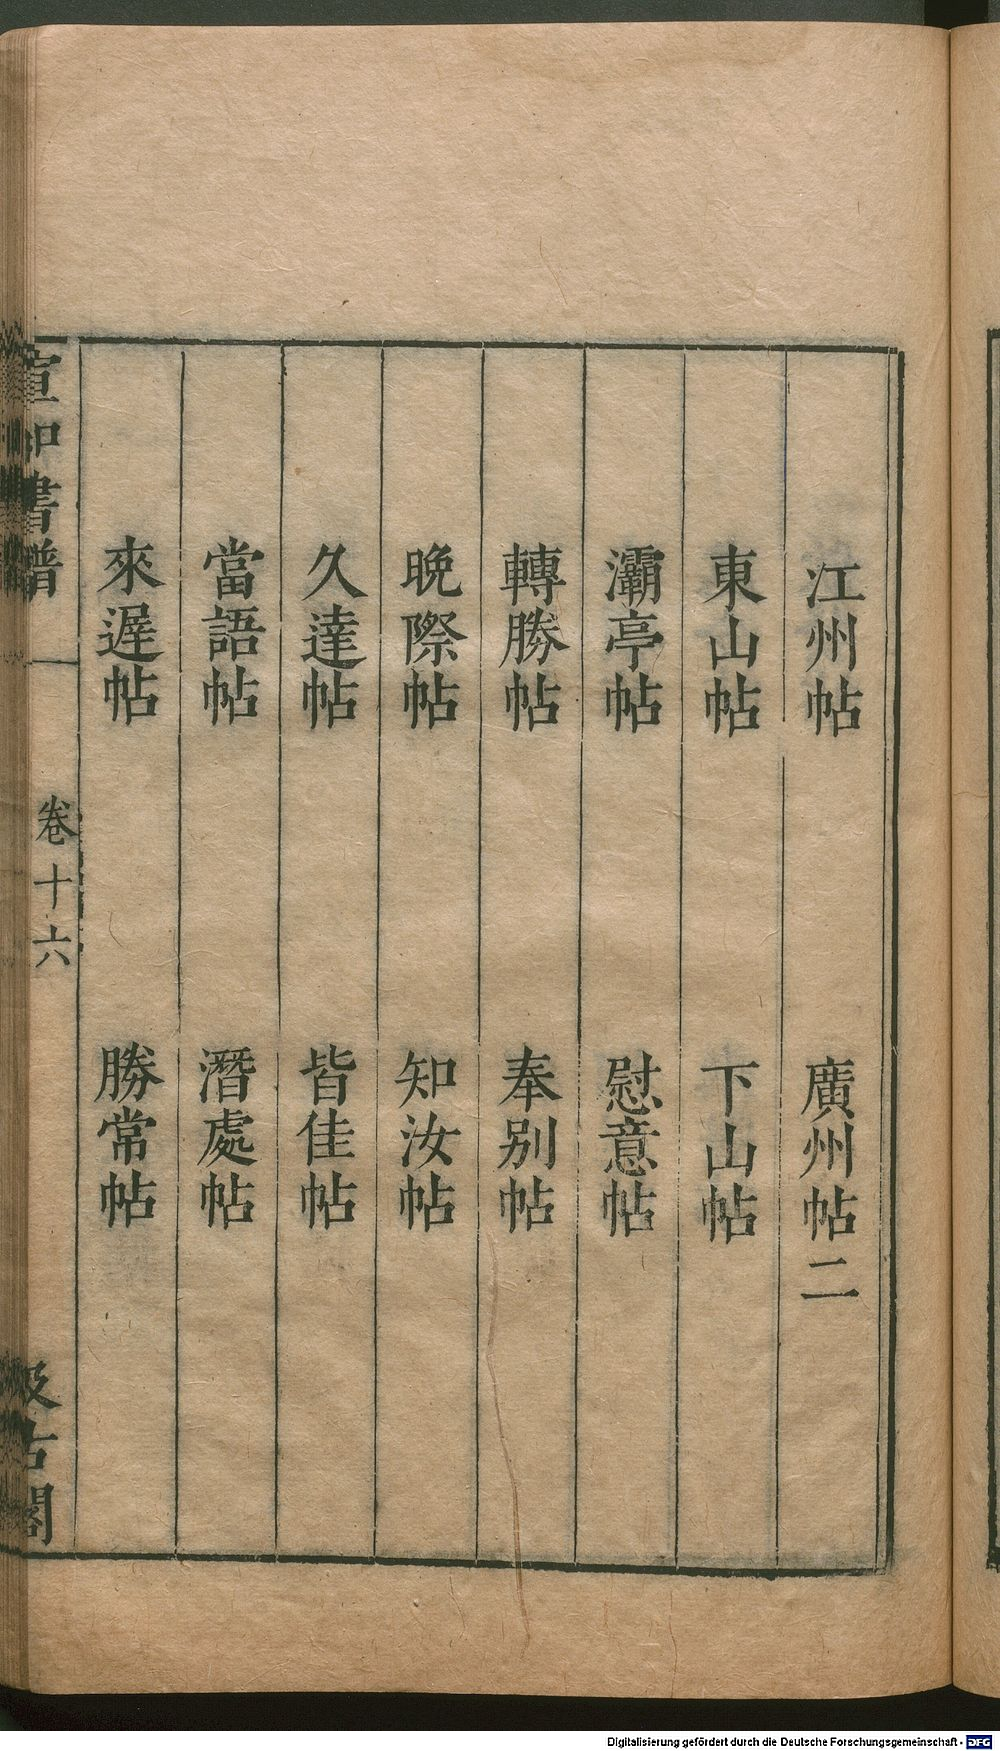 江州帖 廣州帖二
東山帖 下山帖
灞亭帖 慰意帖
轉勝帖 奉别帖
晚際帖 知汝帖
久達帖 皆佳帖
當語帖 潛處帖
來遲帖 勝常帖
宣和書譜 卷十六 汲古閣
Digitalisierung gefördert durch die Deutsche Forschungsgemeinschaft - DFG